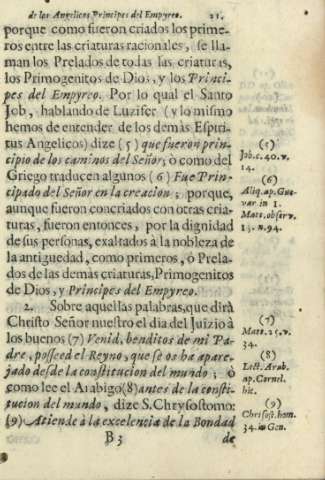 de los Angelicos Principes del Empyreo. 21.
porque como fueron criados los prime-
ros entre las criaturas racionales, se lla-
man los Prelados de todas las criaturas,
los Primogenitos de Dios, y los Princi-
pes del Empyreo. Por lo qual el Santo
Job, hablando de Luzifer (y lo mismo
hemos de entender de los demàs Espiri-
tus Angelicos) dize (5) que fueron prin-
cipio de los caminos del Señor; ò como del
Griego traducen algunos (6) Fue Prin-
cipado del Señor en la creacion; porque,
aunque fueron concriados con otras cria-
turas, fueron entonces, por la dignidad
de sus personas, exaltados à la nobleza de
la antiguedad, como primeros, ò Prela-
dos de las demás criaturas, Primogenitos
de Dios, y Principes del Empyreo.
2. Sobre aquellas palabras, que dirà
Christo Señor nuestro el dia del Juizio à
los buenos (7) Venid, benditos de mi Pa-
dre, posseed el Reyno, que se os ha apare-
jado desde la constitucion del mundo; ò
como lee el Arabigo (8) antes de la consti-
tucion del mundo, dize S. Chrysostomo:
(9) Atiende à la excelencia de la Bondad
B 3 de
(5)
Job. c. 40. v.
14.
(6)
Aliq. ap. Gue-
var in 1.
Mat. obser v.
13. n. 94.
(7)
Matt. 25. v.
34.
(8)
Lect. Arab.
ap. Cornel.
hic.
(9)
Chrisost. hom.
34. in Gen.